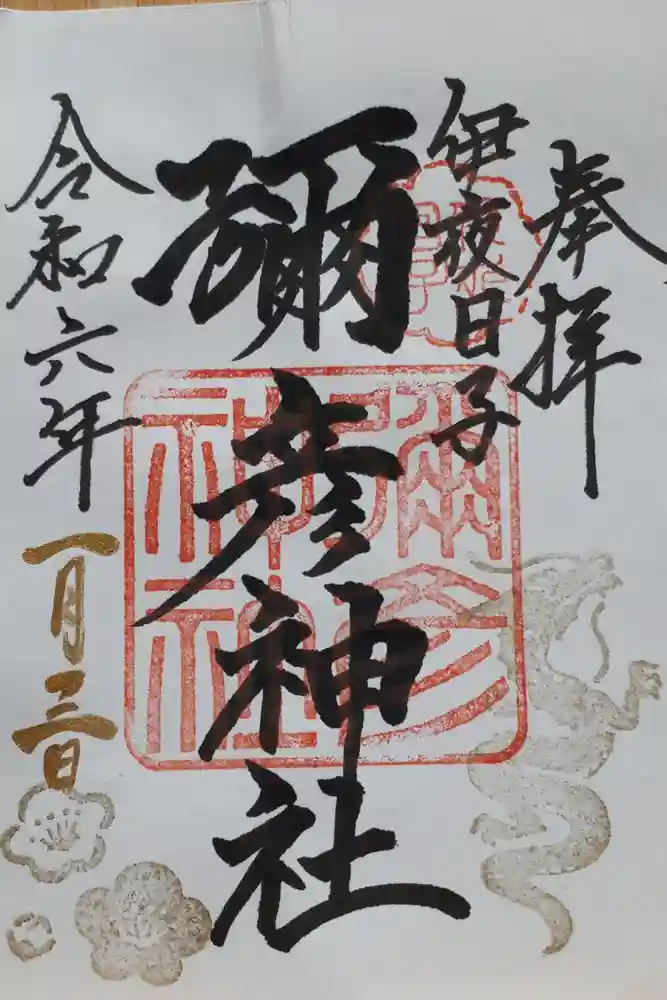 奉拝
伊夜日子
彌彦神社
令和六年
一月三日
彌彦
神社